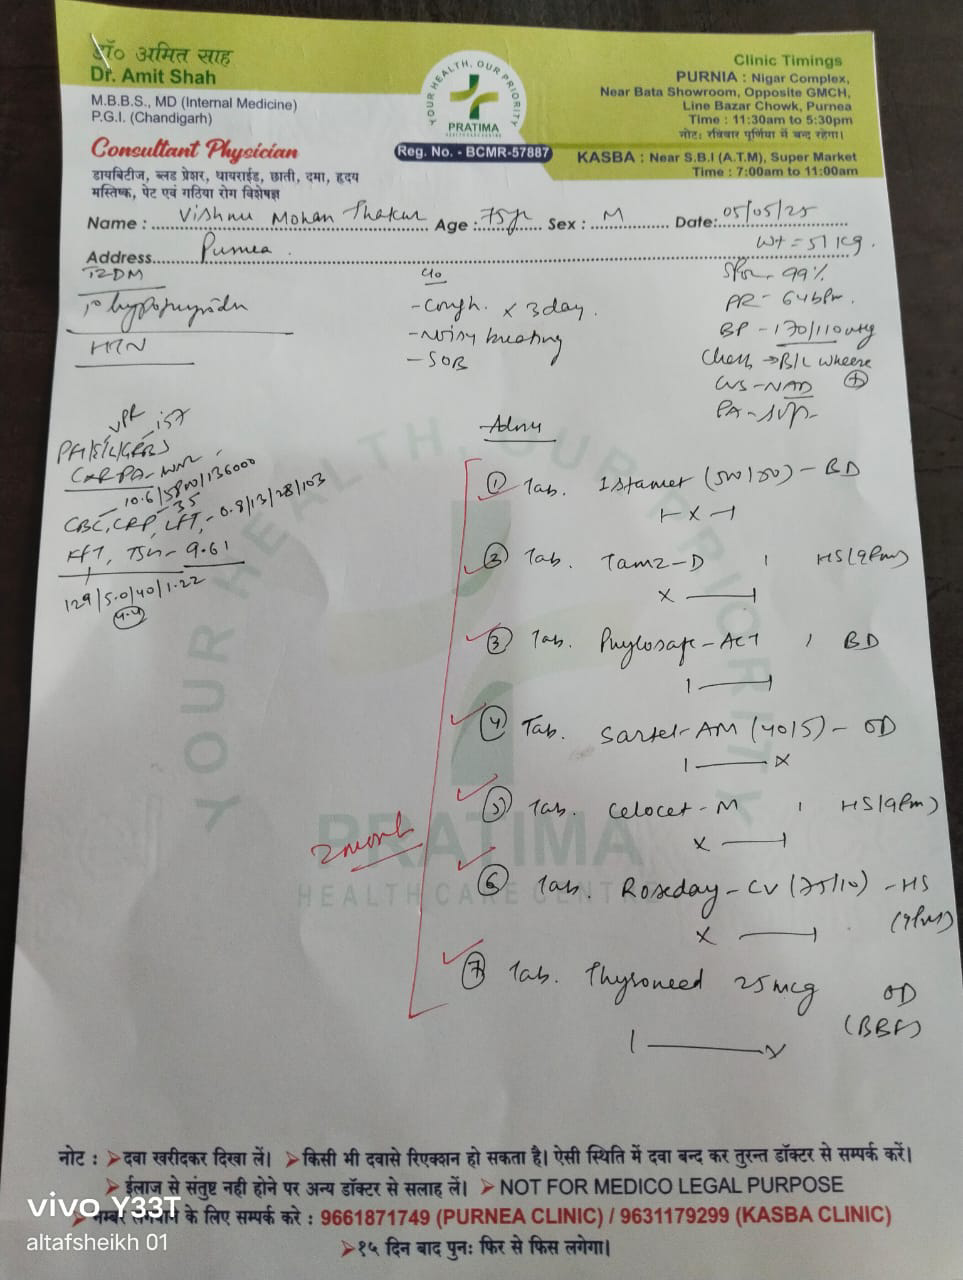 डॉ० अमित साह
Dr. Amit Shah
M.B.B.S., MD (Internal Medicine)
P.G.I. (Chandigarh)
Consultant Physician
डायबिटीज, ब्लड प्रेशर, थायराईड, छाती, दमा, हृदय
मस्तिष्क, पेट एवं गठिया रोग विशेषज्ञ
YOUR HEALTH, OUR PRIORITY
PRATIMA
HEALTH CARE CENTRE
Reg. No. - BCMR-57887
Clinic Timings
PURNIA : Nigar Complex,
Near Bata Showroom, Opposite GMCH,
Line Bazar Chowk, Purnea
Time : 11:30am to 5:30pm
नोट: रविवार पूर्णिया में बन्द रहेगा।
KASBA : Near S.B.I (A.T.M), Super Market
Time : 7:00am to 11:00am
Name : Vishnu Mohan Thakur Age : 75yr Sex : M Date: 05/05/25
Address Purnea
Wt = 51 kg.
T2DM
HTN
c/o
- Cough x 3day.
- Noisy breating
- SOB
SPO2 - 99%
PR - 64bpm.
BP - 170/110
Chest → B/L wheeze +
CVS - NAD
PA - Soft
10.6/5800/136000
CBC, CRP, LFT, - 0.8/13/28/103
35
KFT, TSH - 9.61
129/5.0/40/1.22
4.4
Adv
1 Tab. Istamet (500/50) - BD
2 Tab. Tamz-D 1 HS (9Pm)
3 Tab. Phylosafe-ACT 1 BD
4 Tab. Sartel-AM (40/5) - OD
5 Tab. Celocet-M 1 HS (9Pm)
6 Tab. Roseday-CV (75/10) - HS
(9Pm)
7 Tab. Thyroneed 25mcg OD
(BBF)
2 month
YOUR HEALTH, OUR PRIORITY
PRATIMA
HEALTH CARE CENTRE
नोट : ➤दवा खरीदकर दिखा लें। ➤किसी भी दवासे रिएक्शन हो सकता है। ऐसी स्थिति में दवा बन्द कर तुरन्त डॉक्टर से सम्पर्क करें।
➤ईलाज से संतुष्ट नही होने पर अन्य डॉक्टर से सलाह लें। ➤NOT FOR MEDICO LEGAL PURPOSE
➤नम्बर लगवाने के लिए सम्पर्क करे : 9661871749 (PURNEA CLINIC) / 9631179299 (KASBA CLINIC)
➤१५ दिन बाद पुनः फिर से फिस लगेगा।
vivo Y33T
altafsheikh 01